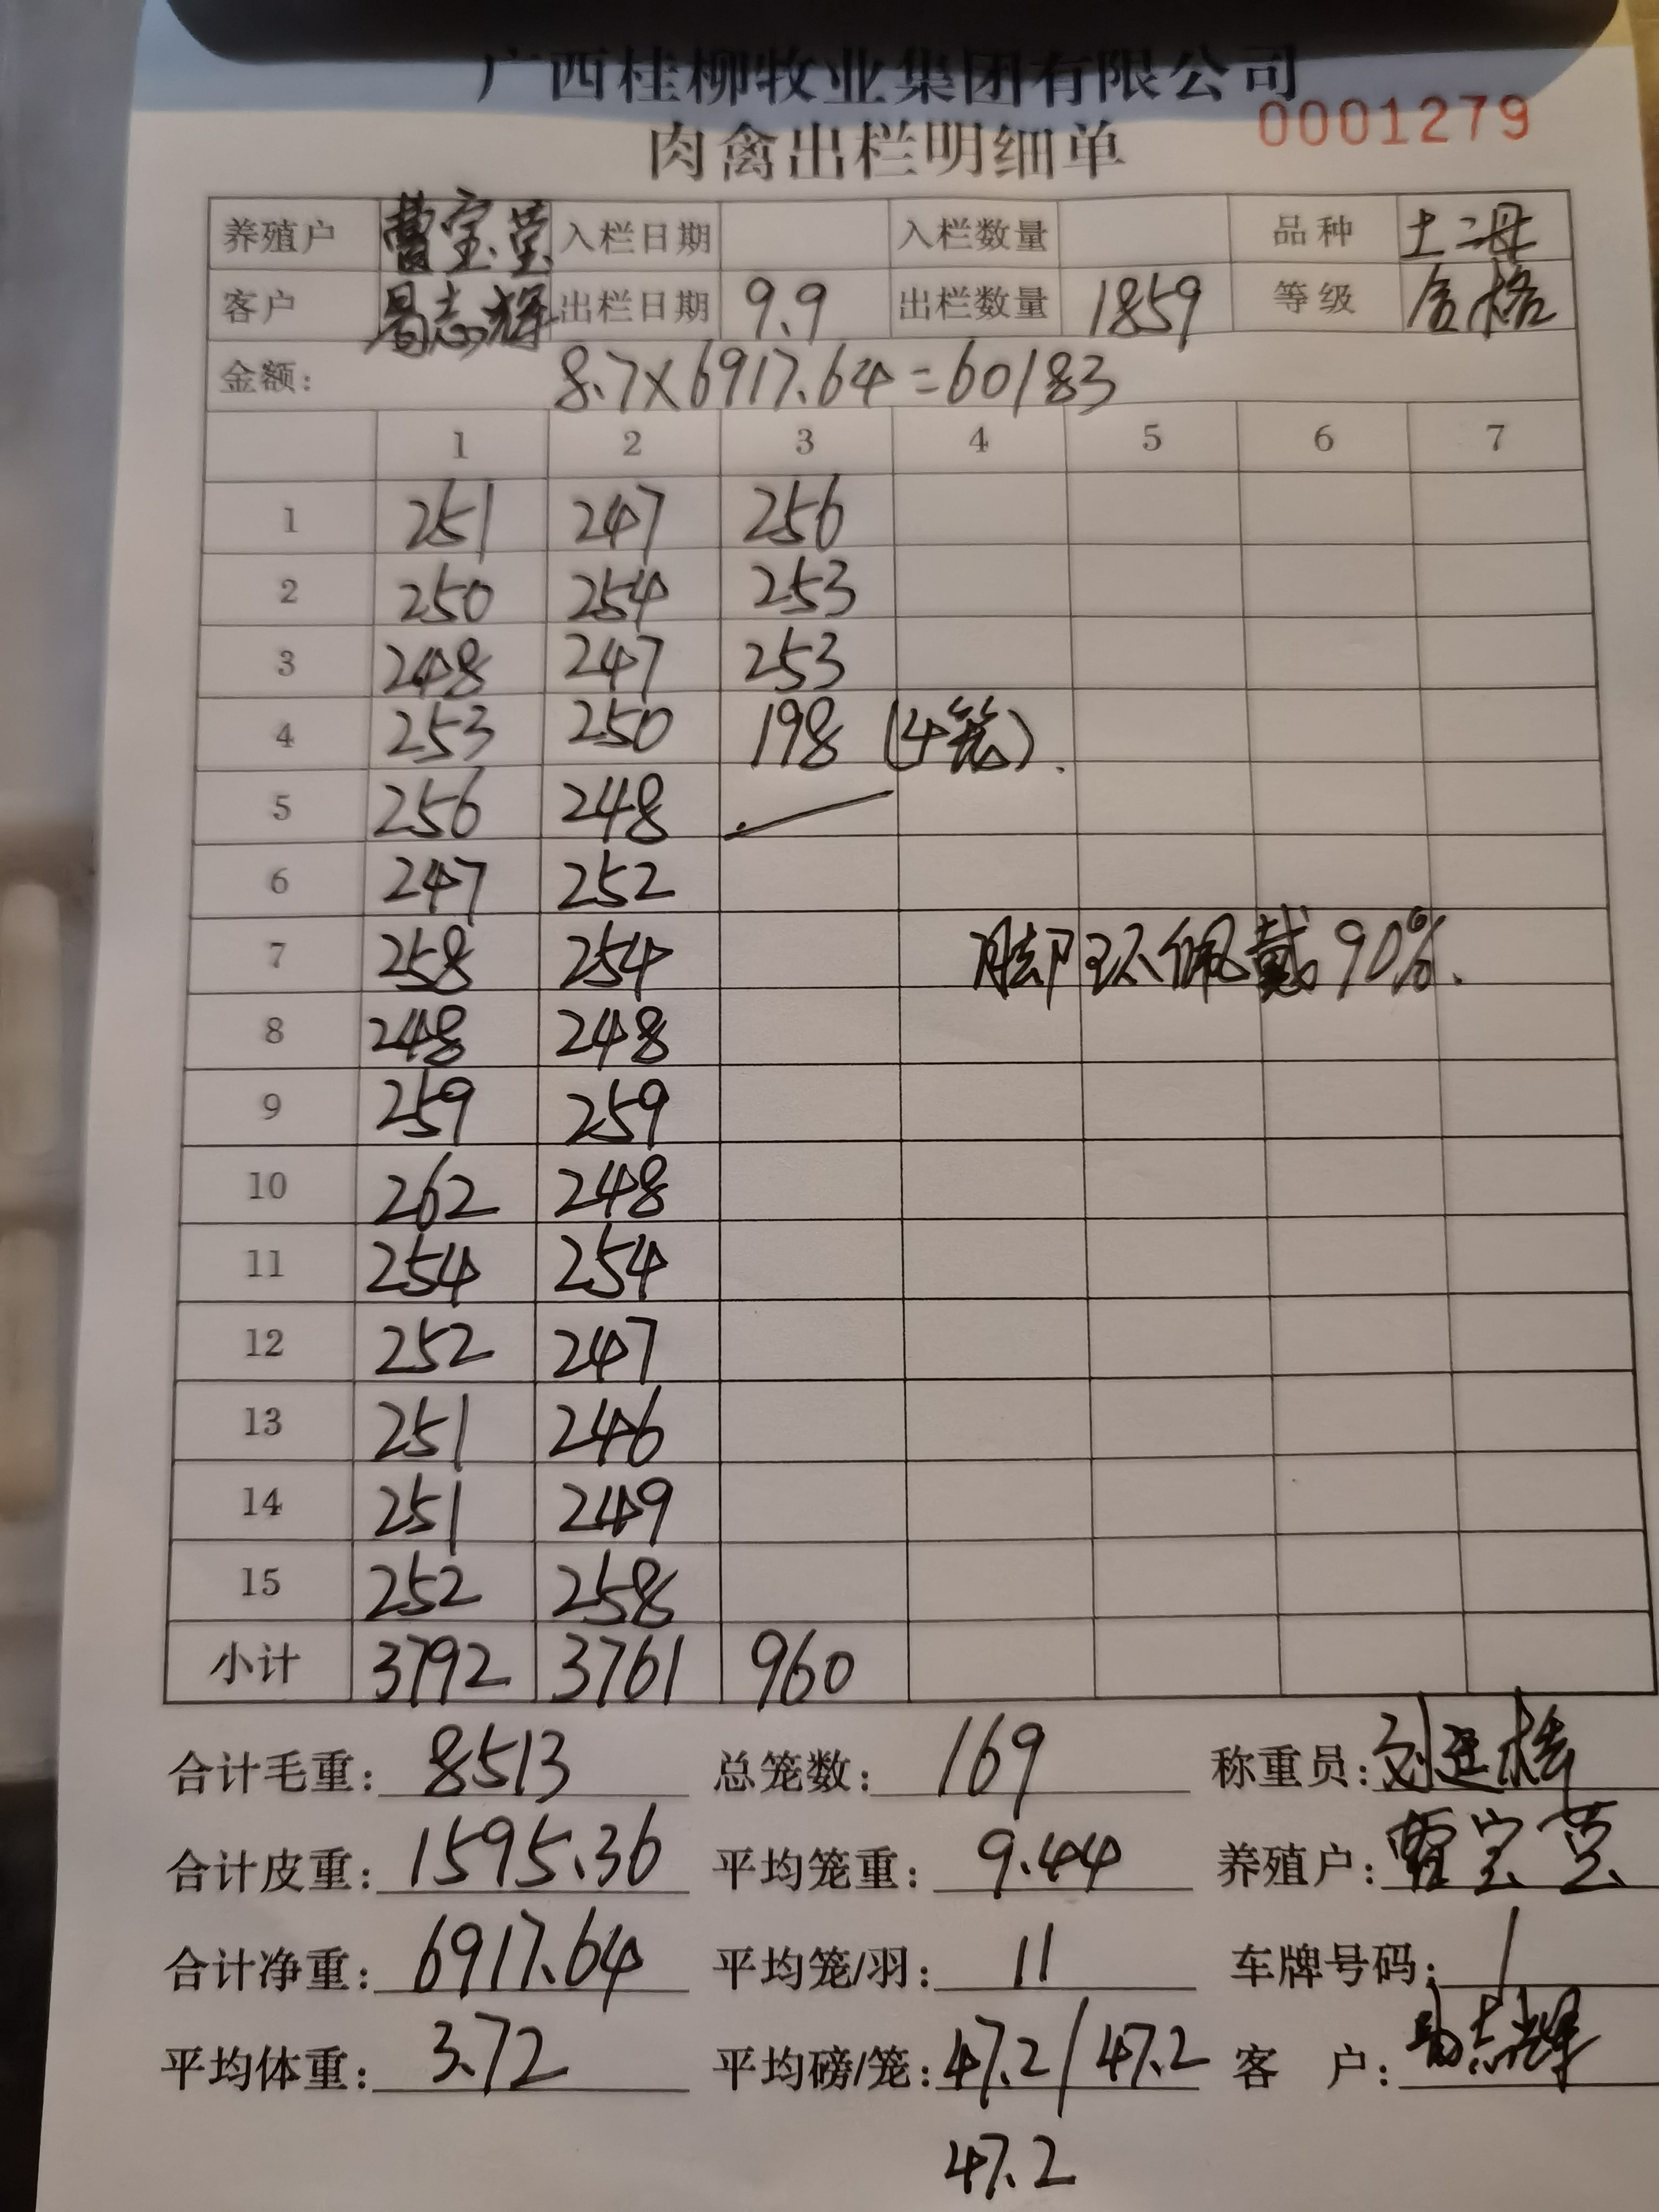 广西桂柳牧业集团有限公司
肉禽出栏明细单 0001279
养殖户 曹宝莹 入栏日期 入栏数量 品种 土二母
客户 易志辉 出栏日期 9.9 出栏数量 1859 等级 合格
金额: 8.7×6917.64=60183
1 2 3 4 5 6 7
1 251 247 256
2 250 254 253
3 248 247 253
4 253 250 198 (4笼).
5 256 248
6 247 252
7 258 254 脚环佩戴90%.
8 248 248
9 259 259
10 262 248
11 254 254
12 252 247
13 251 246
14 251 249
15 252 258
小计 3792 3761 960
合计毛重: 8513 总笼数: 169 称重员:
合计皮重: 1595.36 平均笼重: 9.44 养殖户: 曹宝莹
合计净重: 6917.64 平均笼/羽: 11 车牌号码: /
平均体重: 3.72 平均磅/笼: 47.2/47.2 客 户: 易志辉
47.2